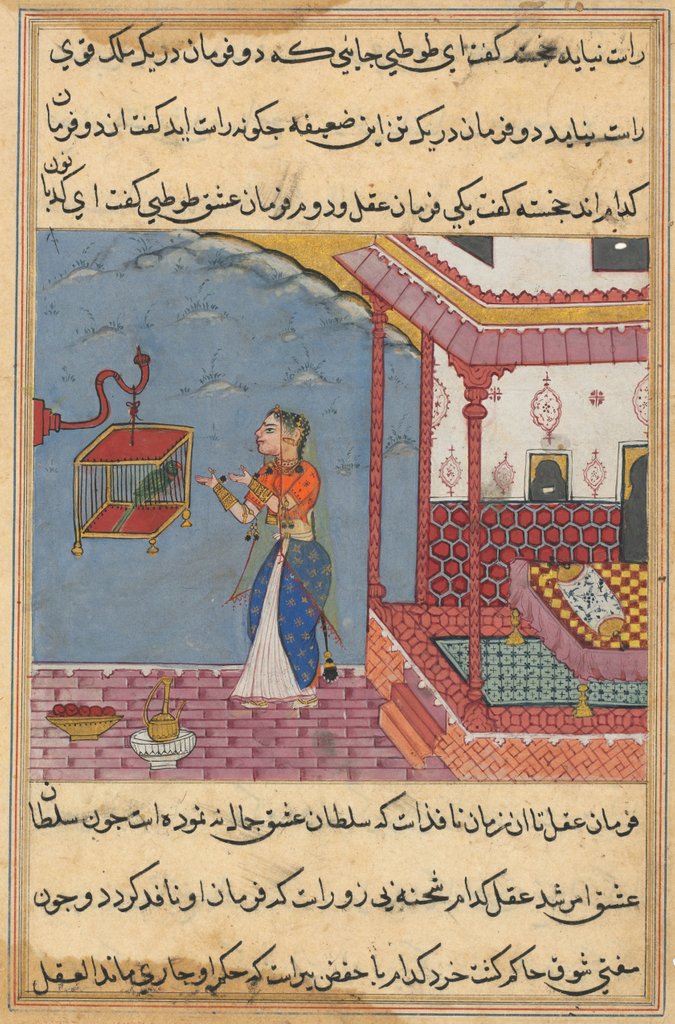 راست نیاید خجسته کفت ای طوطیی جایئی که دو فرمان در یک ملک قوی
راست نیاید دو فرمان در یک تن این ضعیفه جکونه راست اید کفت ان دو فرمان
کدام اند خجسته کفت یکی فرمان عقل و دوم فرمان عشق طوطیی کفت ای کدبانون
فرمان عقل تا ان زمان نافذ است که سلطان عشق جمال نه نموده است جون سلطان
عشق امر شد عقل کدام شحنه بی زور است که فرمان او نافد کردد و جون
مفتی شوق حاکم کشت خرد کدام با حفض پیر است که حکم او جاری ماند العقل